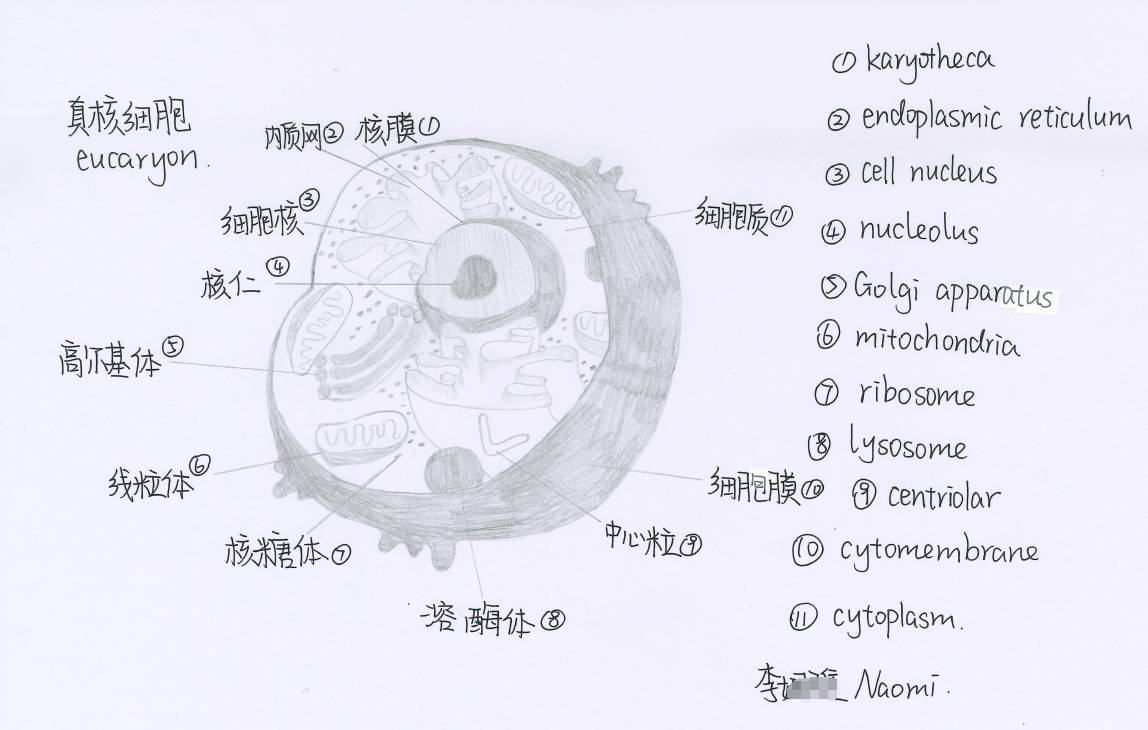 真核细胞
eucaryon.
内质网② 核膜①
细胞核③
核仁④
高尔基体⑤
线粒体⑥
核糖体⑦
溶酶体⑧
细胞质⑪
细胞膜⑩
中心粒⑨
① karyotheca
② endoplasmic reticulum
③ cell nucleus
④ nucleolus
⑤ Golgi apparatus
⑥ mitochondria
⑦ ribosome
⑧ lysosome
⑨ centriolar
⑩ cytomembrane
⑪ cytoplasm.
李 Naomi.